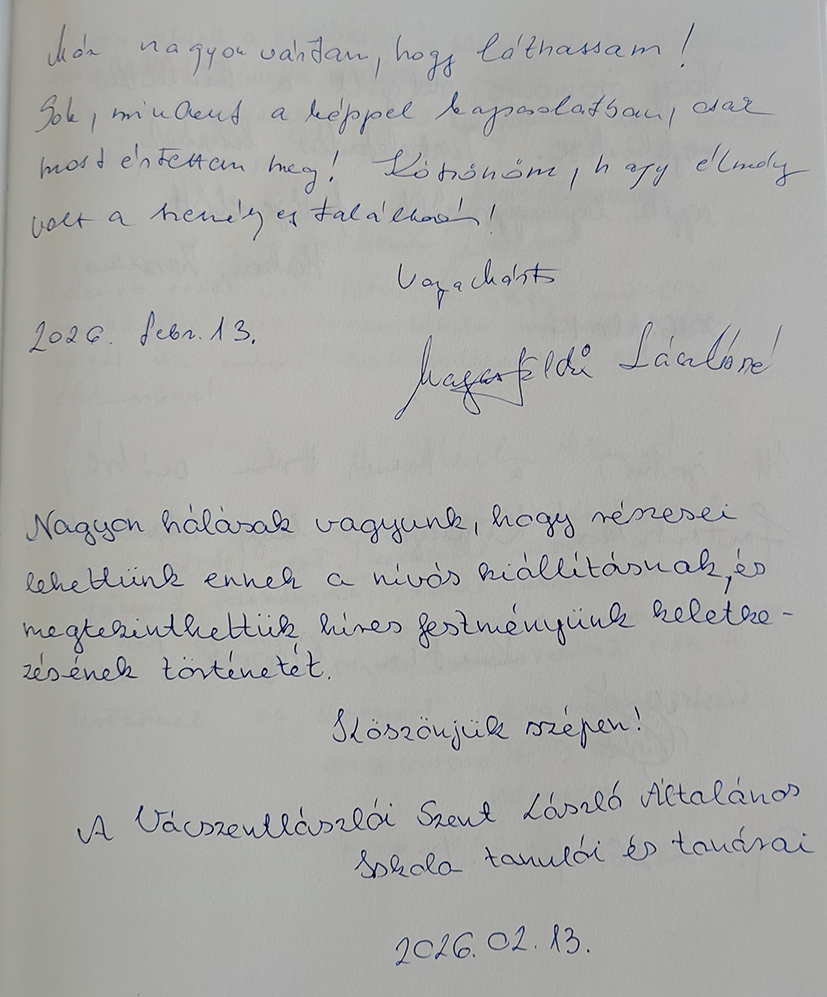 Már nagyon vártam, hogy láthassam!
Sok, mindent a képpel kapcsolatban, csak
most értettem meg! Köszönöm, hogy élmény
volt a személyes találkozás!
2026. febr. 13.
Lászlóné
Nagyon hálásak vagyunk, hogy részesei
lehettünk ennek a nívós kiállításnak, és
megtekinthettük híres festményünk keletke-
zésének történetét.
Köszönjük szépen!
A Vácszentlászlói Szent László Általános
Iskola tanulói és tanárai
2026.02.13.